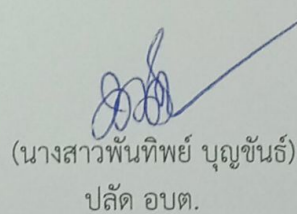 (นางสาวพันทิพย์ บุญขันธ์)
ปลัด อบต.